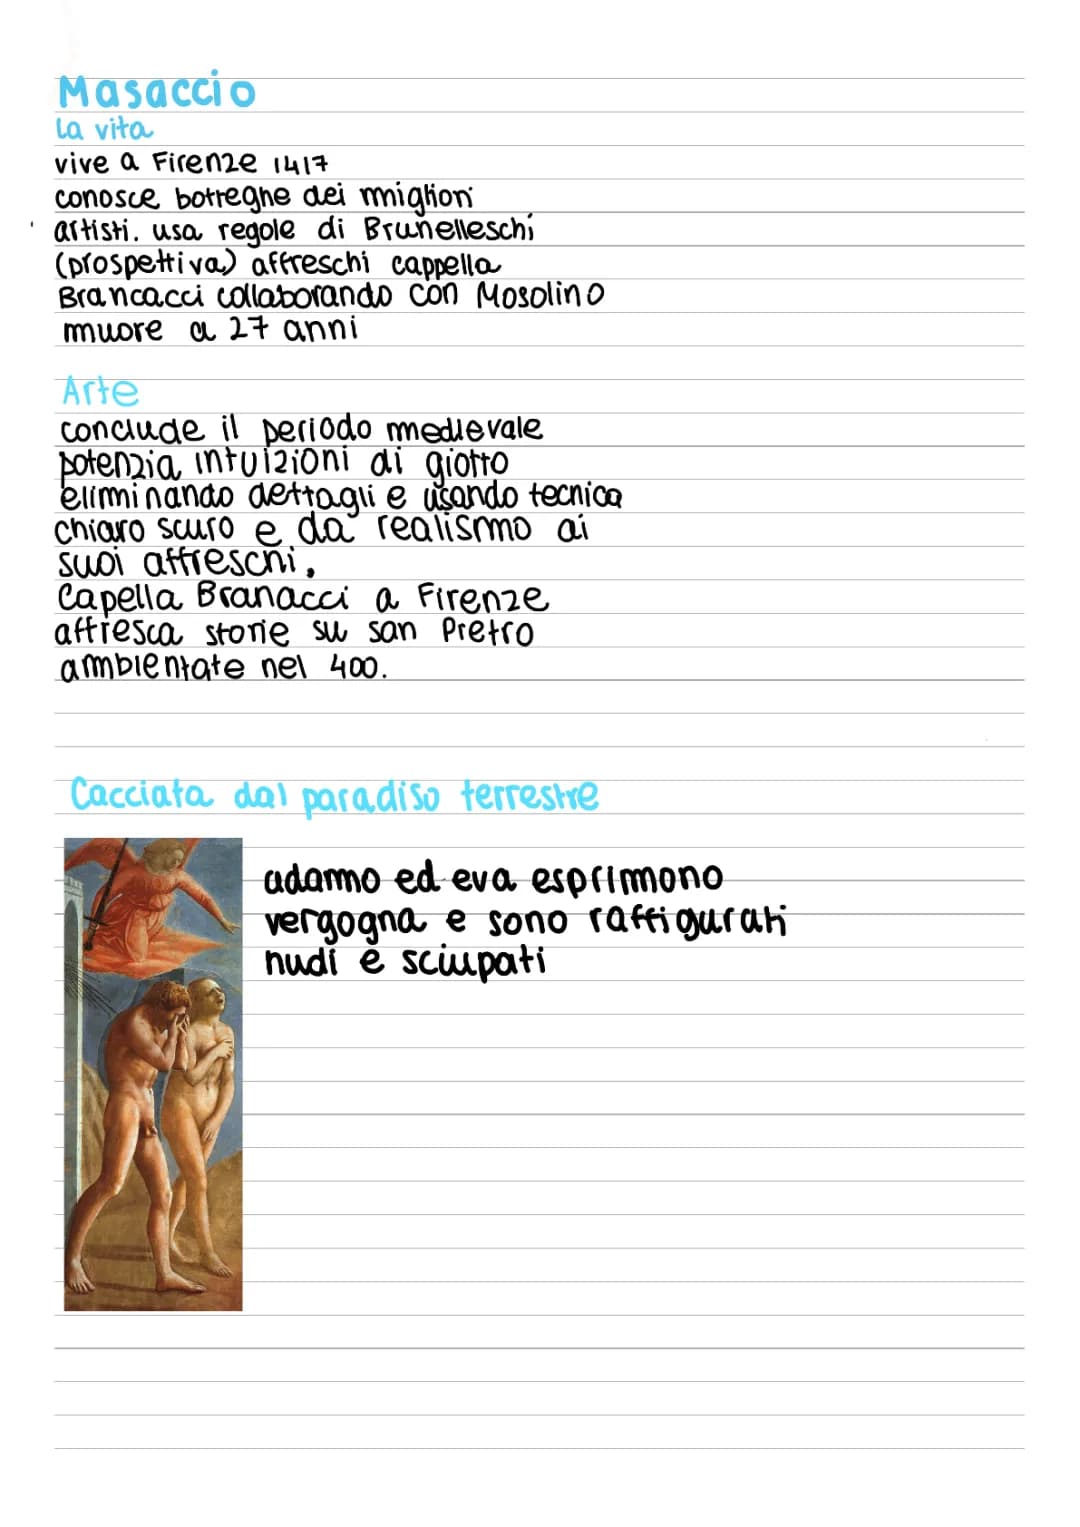 Masaccio
la vita
vive a Firenze 1417
conosce botteghe dei migliori
artisti. usa regole di Brunelleschi
(prospettiva) affreschi cappella
Brancacci collaborando con Mosolino
muore a 27 anni
Arte
conclude il periodo medievale
potenzia intuizioni di giotto
eliminando dettagli e usando tecnica
chiaro scuro e da realismo ai
suoi affreschi.
Capella Branacci a Firenze
affresca storie su san Pietro
ambientate nel 400.
Cacciata dal paradiso terrestre
adamo ed eva esprimono
vergogna e sono raffigurati
nudi e sciupati